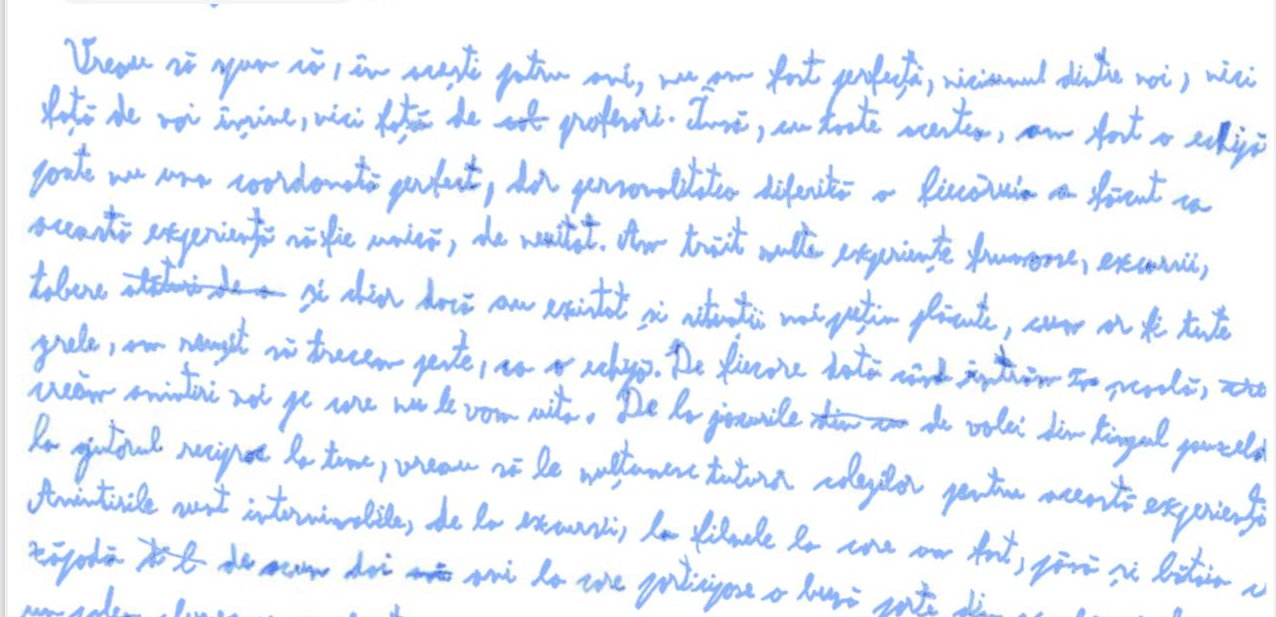 Vreau să spun că, în acești patru ani, nu am fost perfecți, niciunul dintre noi, nici
față de noi înșine, nici față de profesori. Însă, cu toate acestea, am fost o echipă
poate nu una coordonată perfect, dar personalitatea diferită a fiecăruia a făcut ca
această experiență să fie unică, de neuitat. Am trăit multe experiențe frumoase, excursii,
tabere și chiar dacă au existat și situații mai puțin plăcute, cum ar fi teste
grele, am reușit să trecem peste, ca o echipă. De fiecare dată când intrăm în școală,
creăm amintiri noi pe care nu le vom uita. De la jocurile de volei din timpul pauzelor
la ajutorul reciproc la teme, vreau să le mulțumesc tuturor colegilor pentru această experiență
Amintirile sunt interminabile, de la excursii, la filmele la care am fost, până și bătaia
zăpadă de acum doi ani la care participase o bună parte din